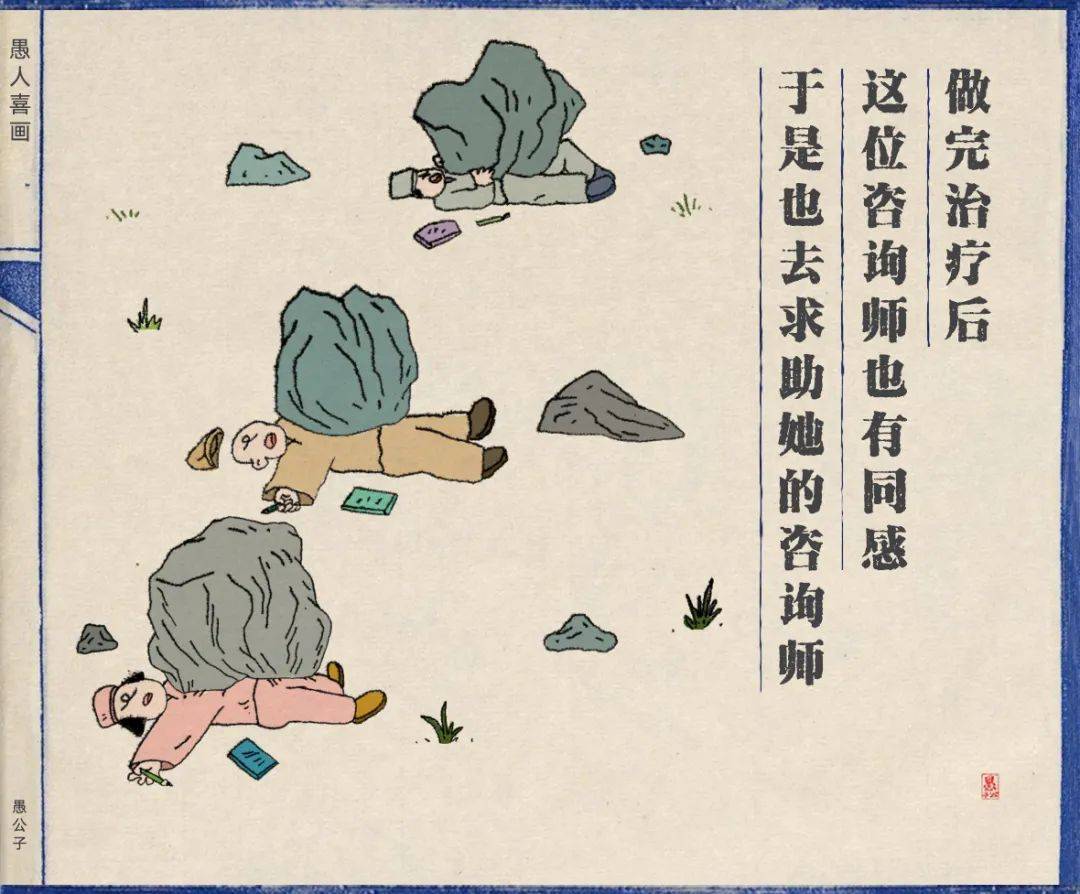 做完治疗后
这位咨询师也有同感
于是也去求助她的咨询师
愚人喜画
愚公子